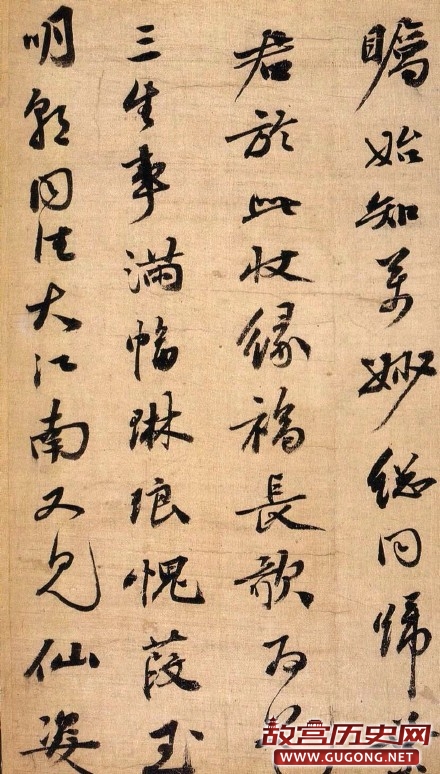 矚始知万妙総同帰
君於此收缘福長歌为
三生事滿幅琳琅愧葭玉
明朝同注大江南又見仙姿
故宫历史网
WWW.GUGONG.NET